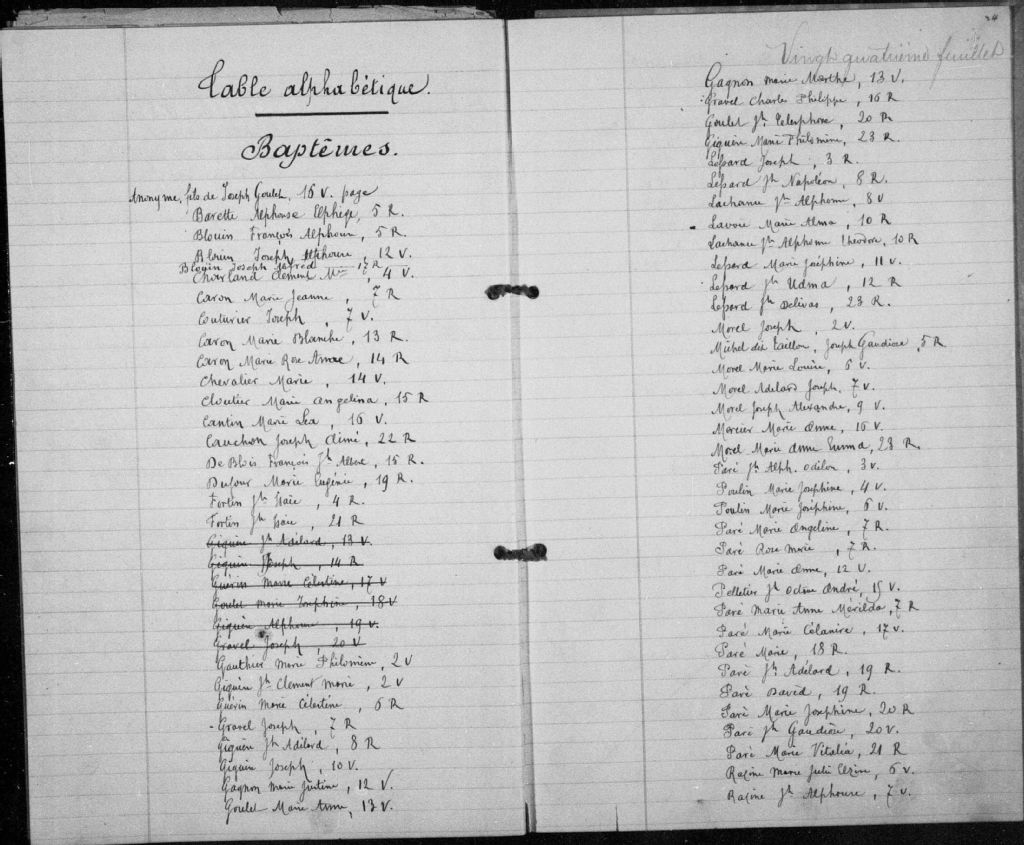 Table alphabétique.
Baptêmes.
Anonyme, fils de Joseph Goulet, 16 V. page
Barette Alphonse Elphège, 5 R.
Blouin François Alphonse, 5 R.
Blouin Joseph Alphonse, 12 V.
Blouin Joseph Alfred 15 R
Charland Clement Mie, 4 V.
Caron Marie Jeanne, 7 R
Couturier Joseph, 7 V.
Caron Marie Blanche, 13 R.
Caron Marie Rose Annae, 14 R
Chevalier Marie, 14 V.
Cloutier Marie Angelina, 15 R
Cantin Marie Léa, 16 V.
Cauchon Joseph Aimé, 22 R
De Blois François Jh Albert, 15 R.
Dufour Marie Eugénie, 19 R.
Fortin Jh Isaïe, 4 R.
Fortin Jh Isaïe, 21 R
Giguère Jh Adélard, 13 V.
Giguère Joseph, 14 R
Guérin Marie Célestine, 17 V
Goulet Marie Josephine, 18 V
Giguère Alphonse, 19 V.
Gravel Joseph, 20 V
Gauthier Marie Philomène, 2 V
Giguère Jh Clement Marie, 2 V
Guérin Marie Célestine, 6 R
Gravel Joseph, 7 R
Giguère Jh Adélard, 8 R
Giguère Joseph, 10 V.
Gagnon Marie Justine, 12 V.
Goulet Marie Anne, 13 V.
24
Vingt quatrième feuillet
Gagnon Marie Marthe, 13 V.
Gravel Charles Philippe, 16 R
Goulet Jh Telesphore, 20 R
Giguère Marie Philomène, 23 R.
Lessard Joseph, 3 R.
Lessard Jh Napoléon, 8 R.
Lachance Jh Alphonse, 8 V
Lavoie Marie Alma, 10 R
Lachance Jh Alphonse Théodore, 10 R
Lessard Marie Joséphine, 11 V.
Lessard Jh Udma, 12 R
Lessard Jh Delivas, 23 R.
Morel Joseph, 2 V.
Michel dit Taillon, Joseph Gaudiose, 5 R
Morel Marie Louise, 5 V.
Morel Adelard Joseph, 7 V.
Morel Joseph Alexandre, 9 V.
Mercier Marie Anne, 16 V.
Morel Marie Anne Emma, 23 R.
Paré Jh Alph. Odilon, 3 V.
Poulin Marie Joséphine, 4 V.
Poulin Marie Joséphine, 6 V.
Paré Marie Angeline, 7 R.
Paré Rose Marie, 7 R.
Paré Marie Anne, 12 V.
Pelletier Jh Octave André, 15 V.
Paré Marie Anne Mérilda, 7 R
Paré Marie Célanire, 17 V.
Paré Marie, 18 R.
Paré Jh Adélard, 19 R.
Paré David, 19 R.
Paré Marie Josephine, 20 R
Paré Jh Gaudiose, 20 V.
Paré Marie Vitalia, 21 R
Racine Marie Juli, 6 V.
Racine Jh Alphonse, 7 V.